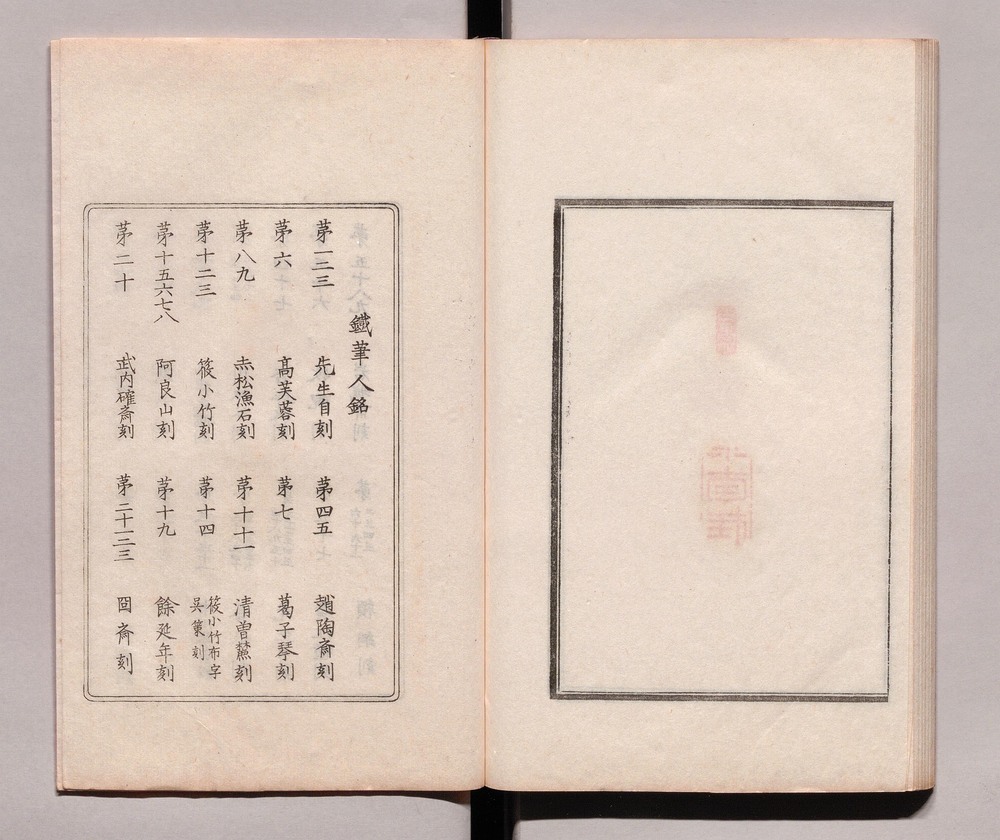 鐵筆人銘
苐一二三 先生自刻 苐四五 趙陶齋刻
苐六 高芙蓉刻 苐七 葛子琴刻
苐八九 赤松漁石刻 苐十十一 清曽䵻刻
苐十二三 篠小竹刻 苐十四 篠小竹布字 呉策刻
苐十五六七八 阿良山刻 苐十九 餘延年刻
苐二十 武内確斎刻 苐二十一二三 囧斎刻